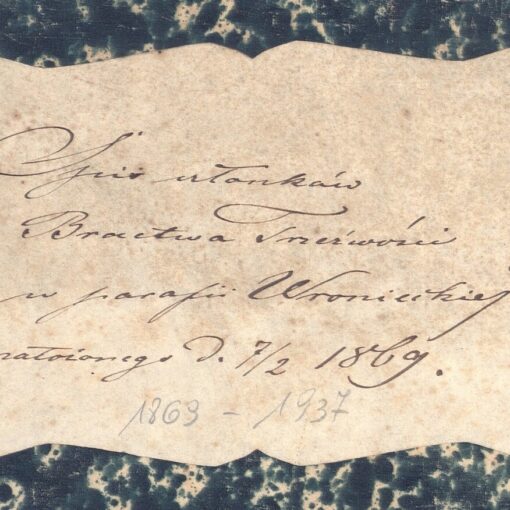 Spis członków
Bractwa Trzeźwości
w parafii Wronieckiej
założonego d. 7/2 1869.
1863 - 1937